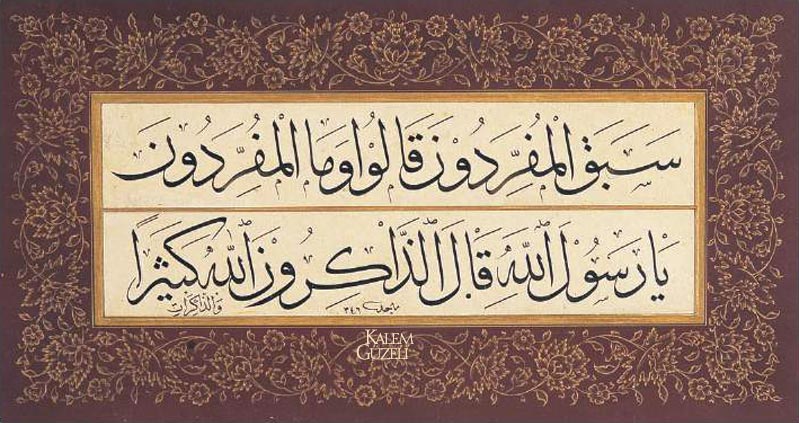 سَبَقَ الْمُفَرِّدُونَ قَالُوا وَمَا الْمُفَرِّدُونَ
يَا رَسُولَ اللّٰهِ قَالَ الذَّاكِرُونَ اللّٰهَ كَثِيرًا
وَالذَّاكِرَاتُ
ماجد ٣٤٦
KALEM
GÜZELİ